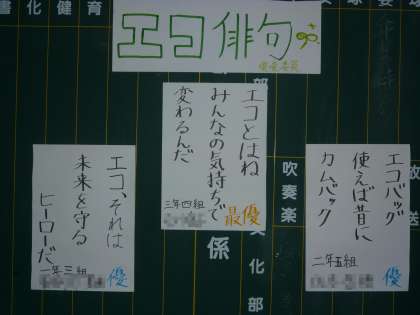 書化健育
エコ俳句
部
エコとはね
みんなの気持ちで
変わるんだ
三年四組
最優
エコバッグ
使えば昔に
カムバック
二年五組
優
エコ、それは
未来を守る
ヒーローだ
一年三組
優
放送
吹奏楽
係
文化部